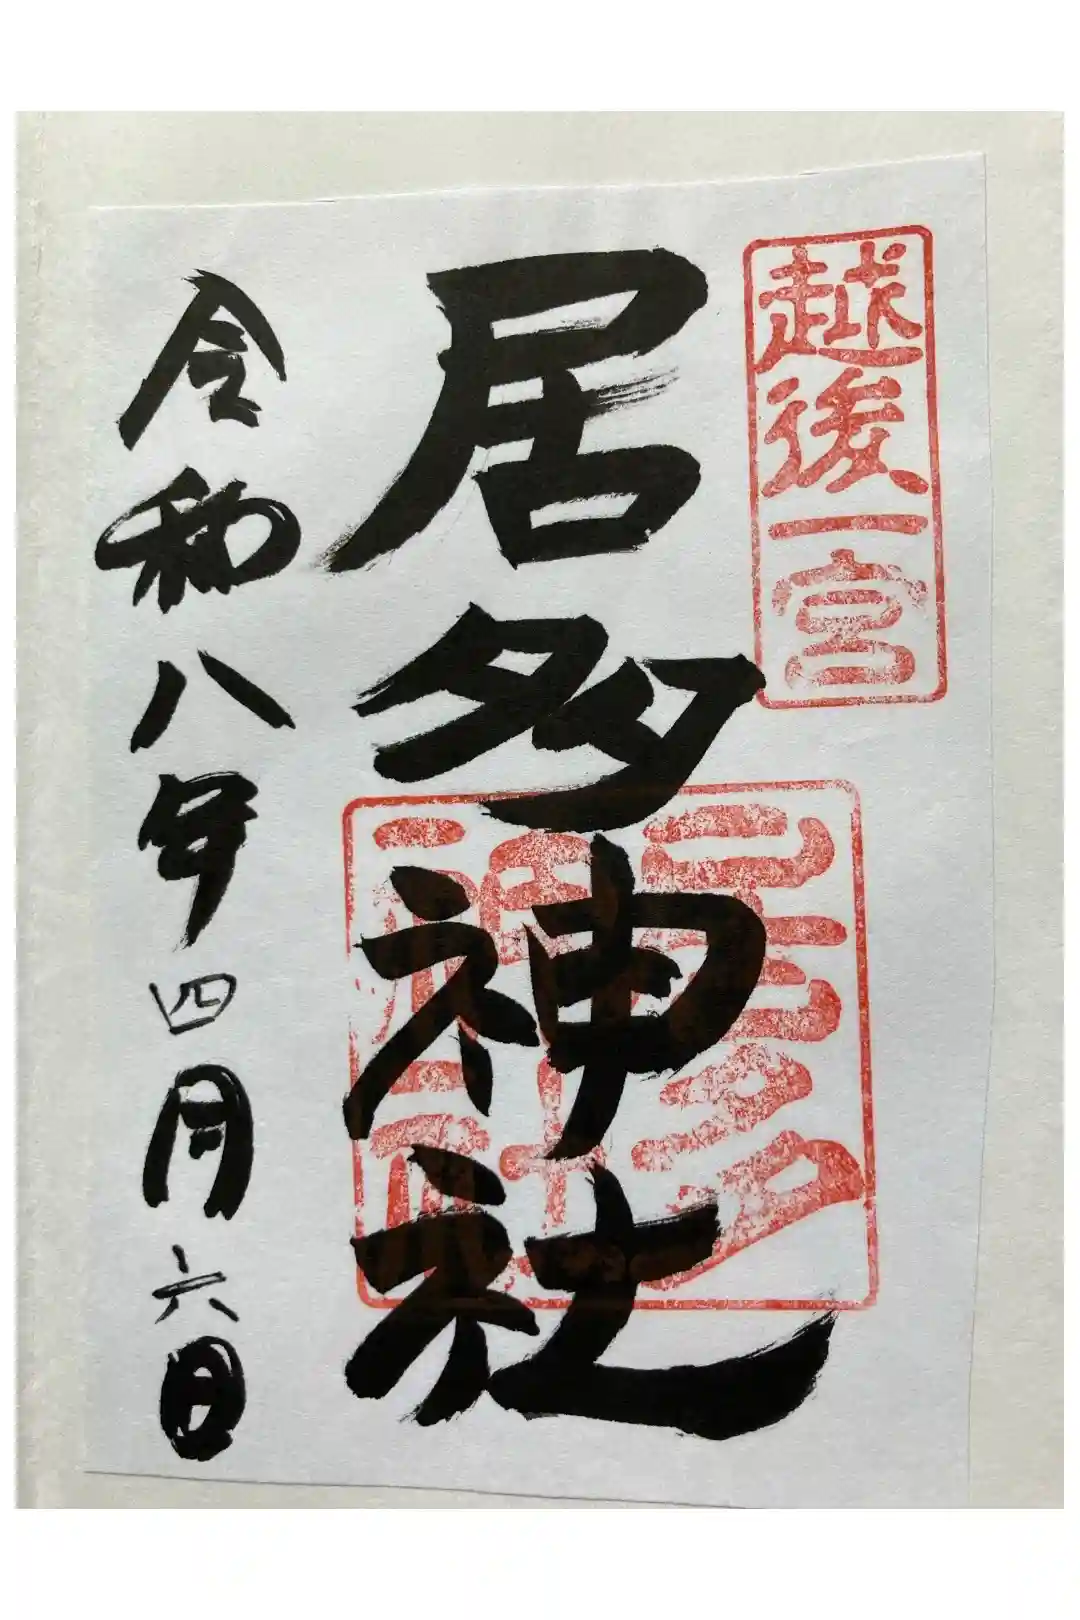 越後一宮
居多神社
居多神社
令和八年四月六日